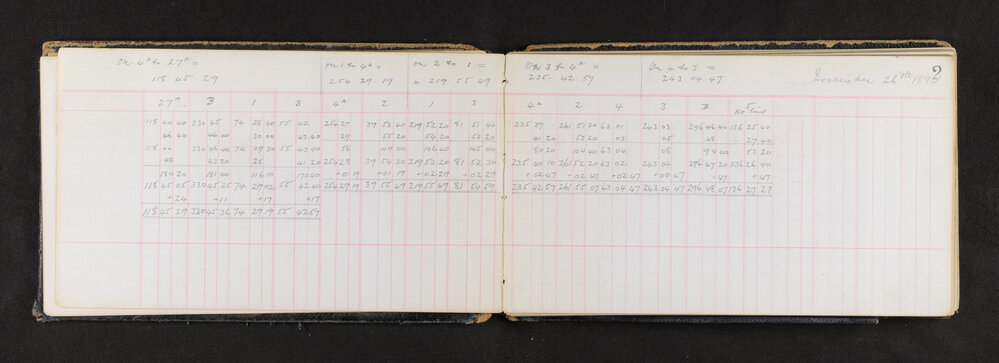 on 4th to 27th =
118 45 . 29
on 1 to 4th =
254 . 29 . 19
on 2 to 1 =
= 219 . 55 49
27th B 1 3 4th 2 1 3
118 44 40 330 45 74 28 40 55 42 254 27 39 53 40 219 52 20 81 51 40
46 40 46 40 30 00 43 40 29 55 20 54 20 53 20
118 46 330 46 40 74 29 30 55 43 40 56 109 00 106 40 105 00
43 43 20 28 41 20 254 28 39 54 30 219 53 20 81 52 30
180 20 181 40 116 10 170 40 +01 19 +01 19 +02 29 +02 29
118 45 05 330 45 25 74 29 02 55 42 40 254 29 19 39 55 49 219 55 49 81 54 59
+24 +11 +17 +17
118 45 29 330 45 36 74 29 19 55 42 57
on 3 to 4th =
235 . 42 . 57
on 4 to 3 =
243 . 04 . 47
2
November 26th
4th 2 4 3 B RR Line
235 39 261 51 20 63 01 243 03 296 46 40 136 25 40
41 20 53 20 03 05 48 27 40
80 20 104 40 63 04 08 94 40 53 20
235 40 10 261 52 20 63 02 243 04 296 47 20 136 26 40
+02 47 +02 47 +02 47 +00 47 +47 +47
235 42 57 261 55 07 63 04 47 243 04 47 296 48 07 136 27 27